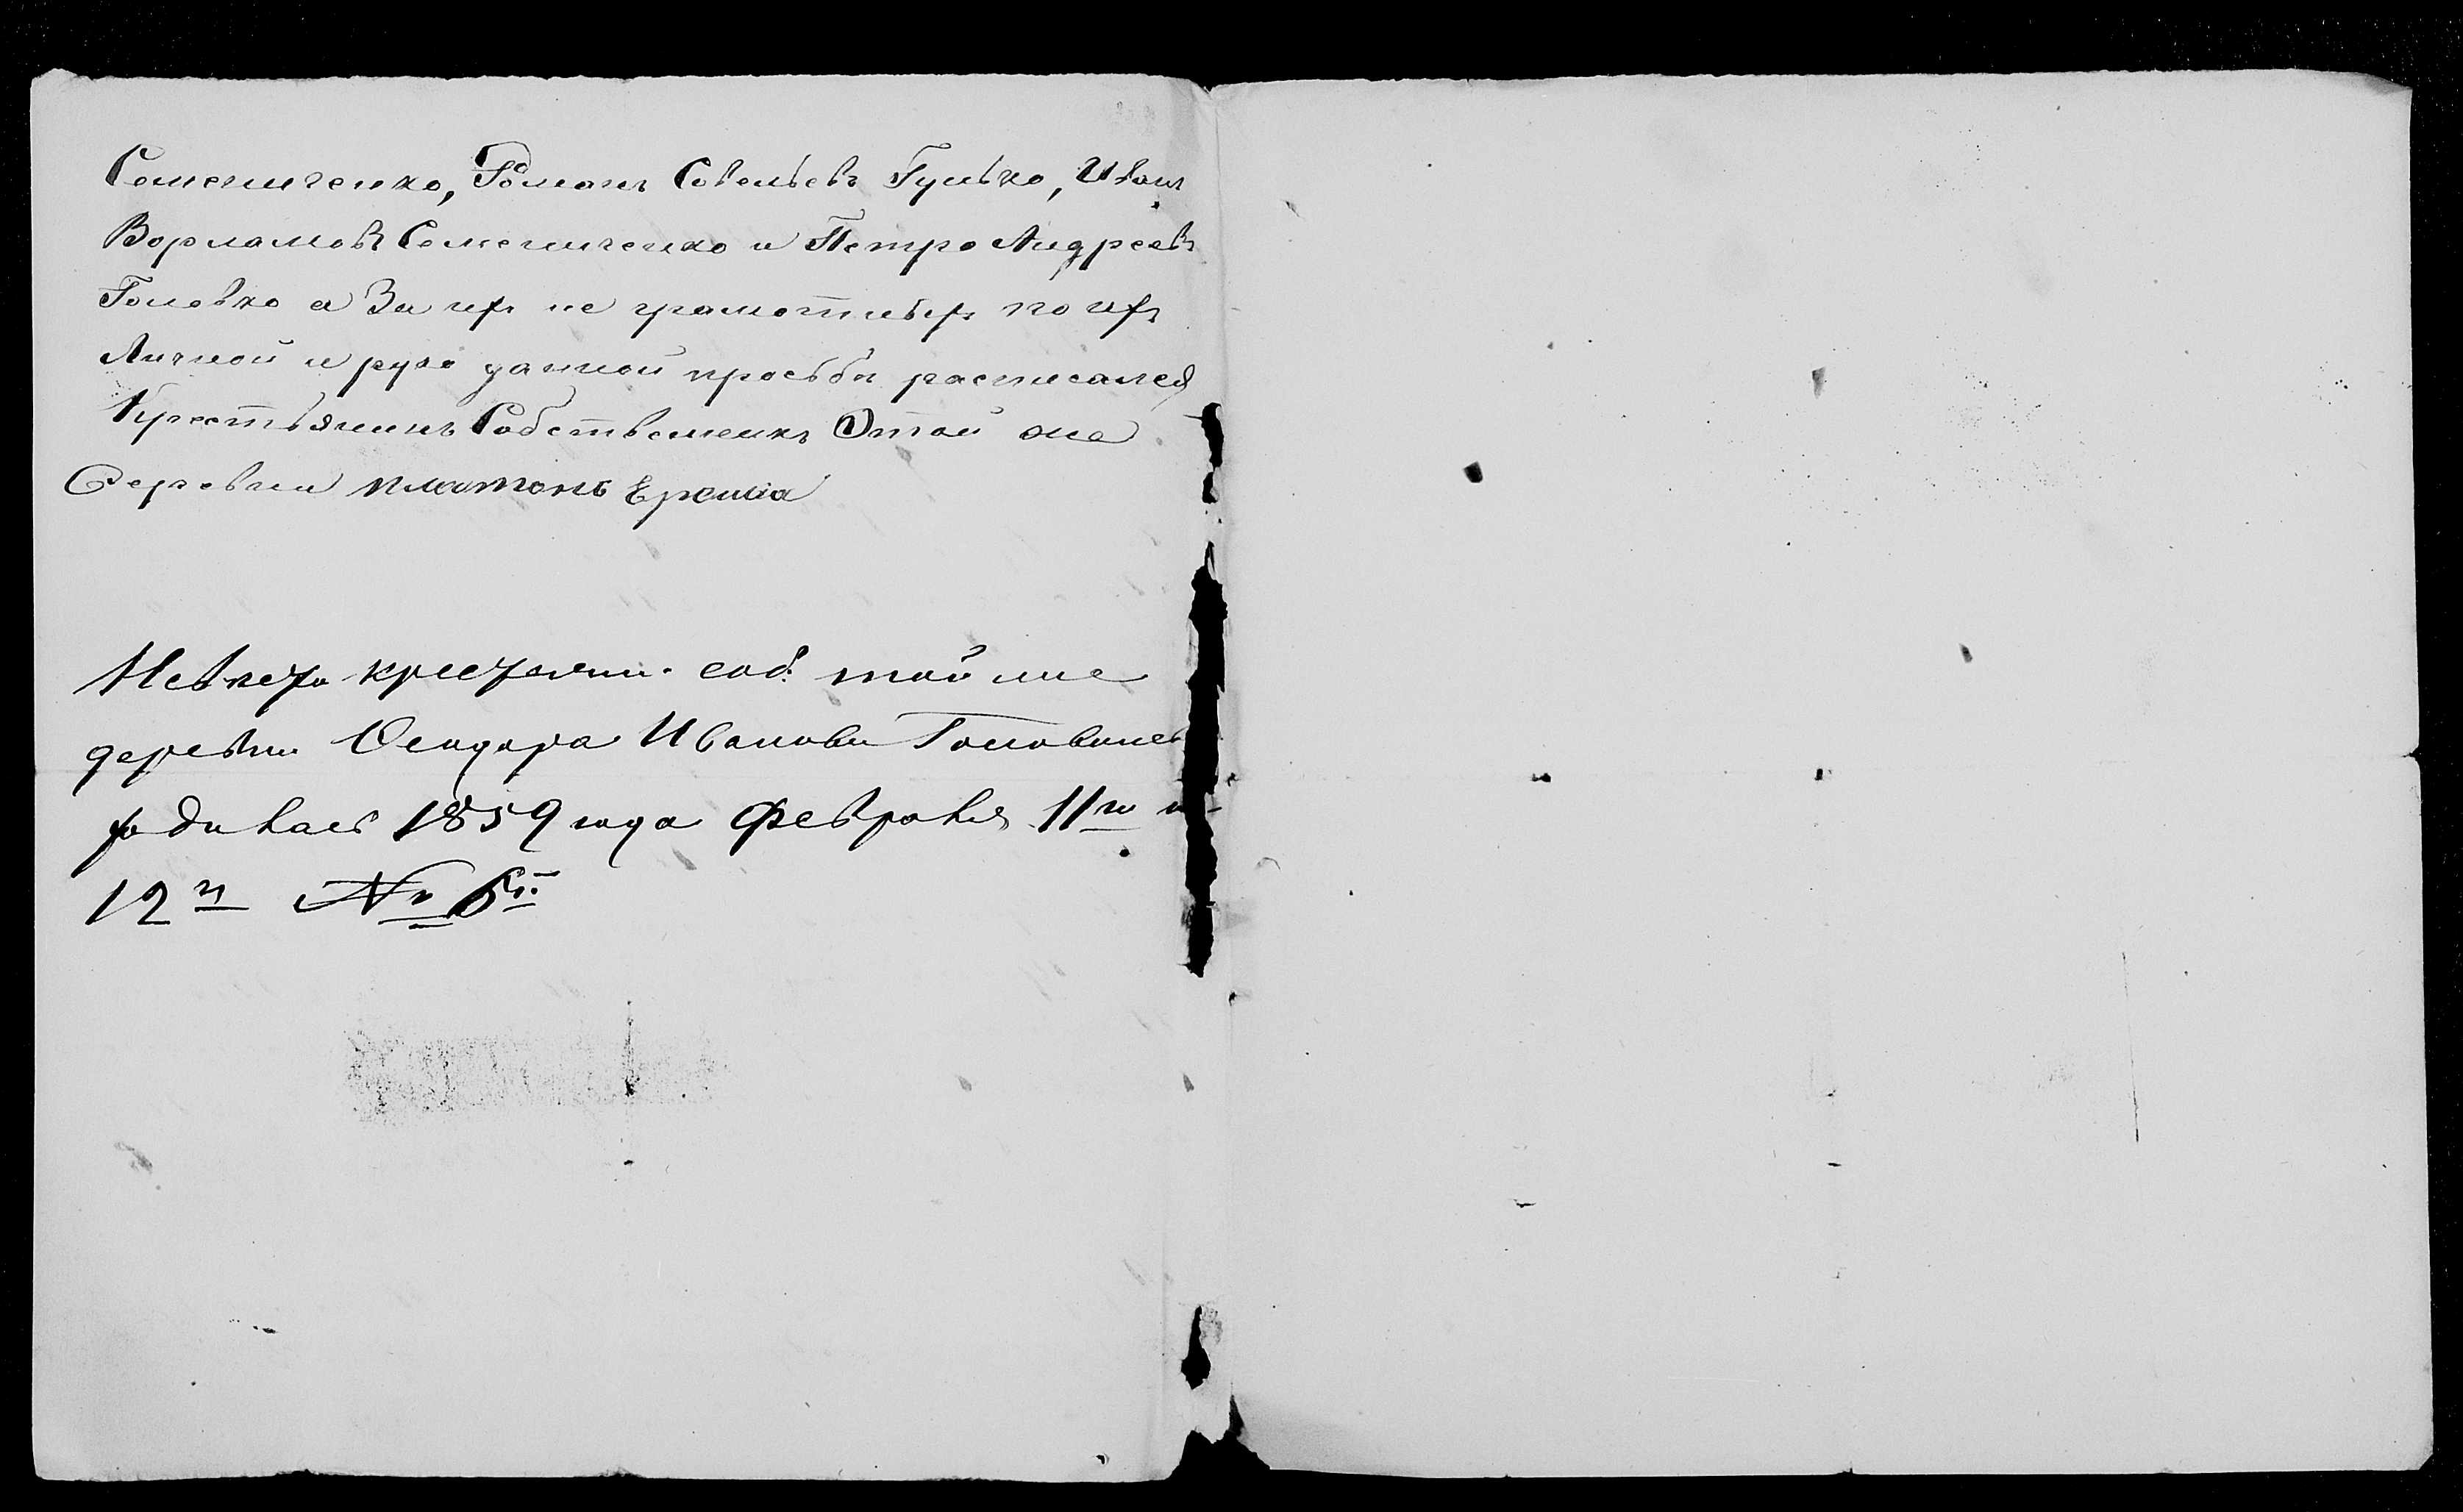 Семениченко, Романъ Савельевъ Гулько, Иванъ
Ворламовъ Семениченко и Петро Андреевъ
Головко а За ихъ не грамотныхъ по ихъ
Личной и руко данной просьбы расписался
Крестьянинъ Собственикъ Этой же
Деревни платонъ Ерема
Невеста крестьяни. соб. той же
деревни Феодора Иванова Головкова
родилась 1859 года Февраля 11го
12й № 6й